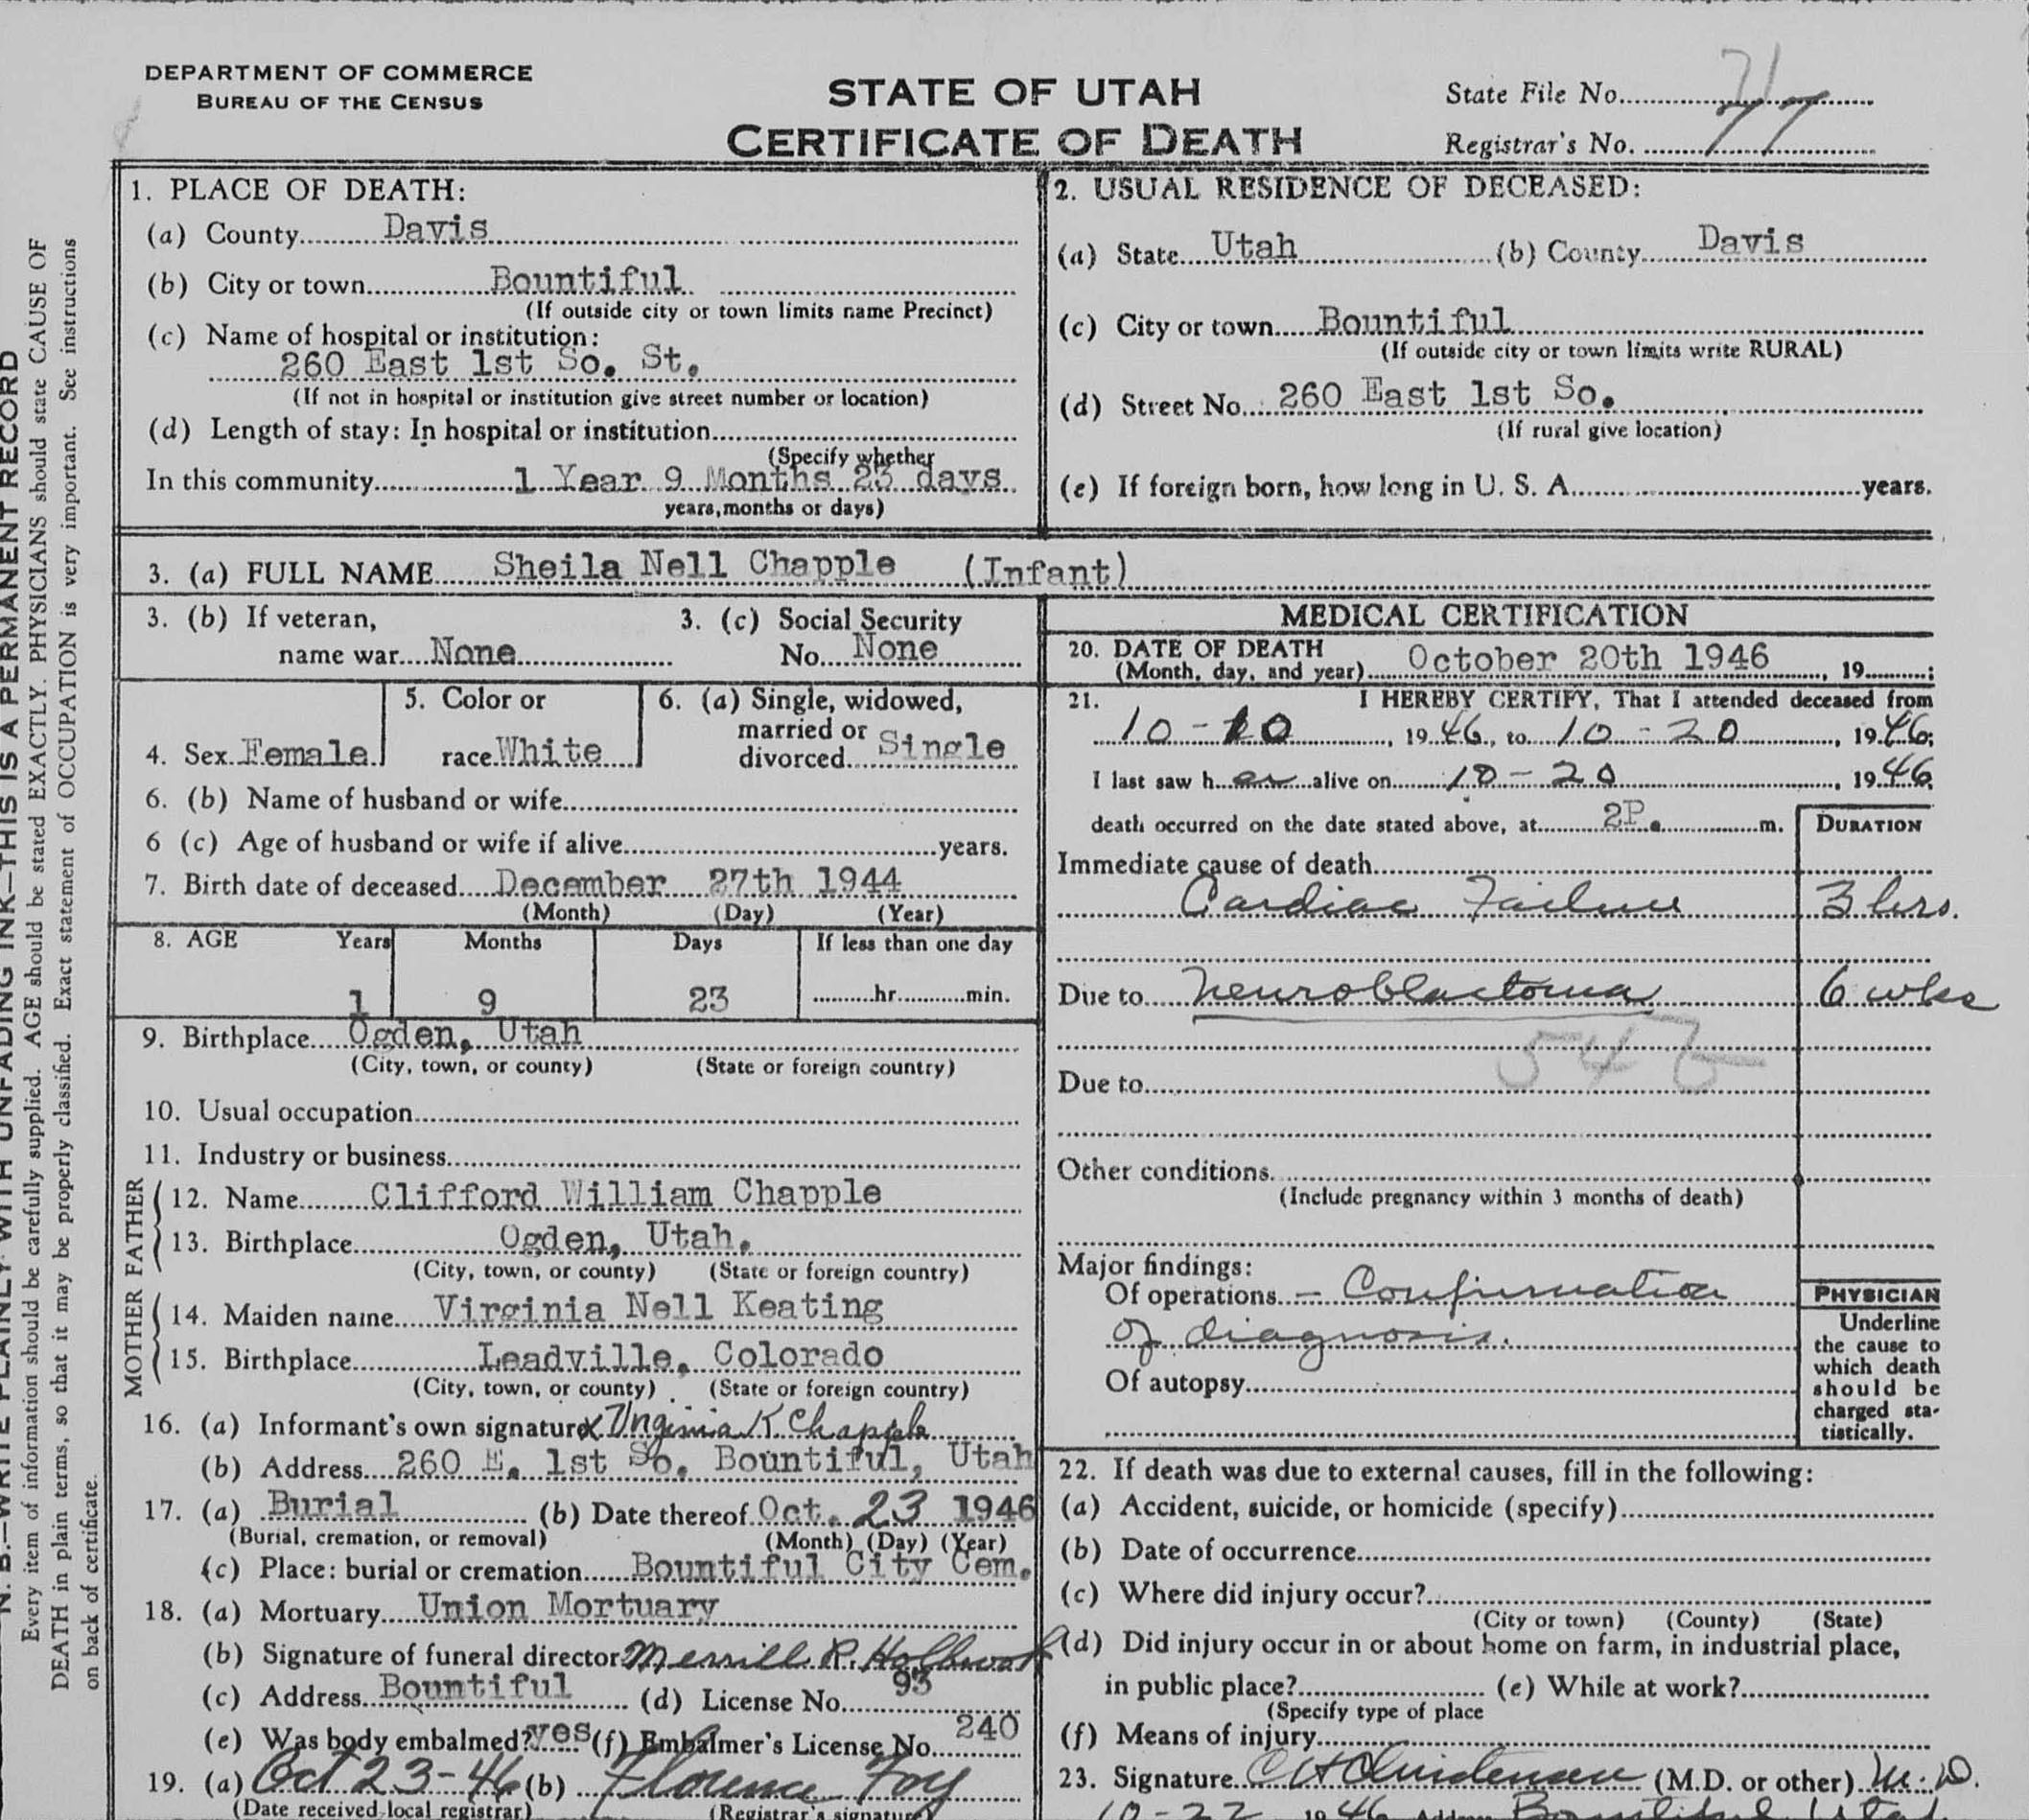 DEPARTMENT OF COMMERCE
BUREAU OF THE CENSUS
STATE OF UTAH
CERTIFICATE OF DEATH
State File No. 71
Registrar's No. 77
N. B.—WRITE PLAINLY WITH UNFADING INK—THIS IS A PERMANENT RECORD
Every item of information should be carefully supplied. AGE should be stated EXACTLY. PHYSICIANS should state CAUSE OF
DEATH in plain terms, so that it may be properly classified. Exact statement of OCCUPATION is very important. See instructions
on back of certificate.
1. PLACE OF DEATH:
(a) County Davis
(b) City or town Bountiful
(If outside city or town limits name Precinct)
(c) Name of hospital or institution:
260 East 1st So. St.
(If not in hospital or institution give street number or location)
(d) Length of stay: In hospital or institution
(Specify whether
In this community 1 Year 9 Months 23 days
years, months or days)
2. USUAL RESIDENCE OF DECEASED:
(a) State Utah (b) County Davis
(c) City or town Bountiful
(If outside city or town limits write RURAL)
(d) Street No. 260 East 1st So.
(If rural give location)
(e) If foreign born, how long in U. S. A. years.
3. (a) FULL NAME Sheila Nell Chapple (Infant)
3. (b) If veteran,
name war None
3. (c) Social Security
No. None
4. Sex Female
5. Color or
race White
6. (a) Single, widowed,
married or
divorced Single
6. (b) Name of husband or wife
6 (c) Age of husband or wife if alive years.
7. Birth date of deceased December 27th 1944
(Month) (Day) (Year)
8. AGE Years Months Days If less than one day
1 9 23 hr. min.
9. Birthplace Ogden, Utah
(City, town, or county) (State or foreign country)
10. Usual occupation
11. Industry or business
FATHER
12. Name Clifford William Chapple
13. Birthplace Ogden, Utah.
(City, town, or county) (State or foreign country)
MOTHER
14. Maiden name Virginia Nell Keating
15. Birthplace Leadville, Colorado
(City, town, or county) (State or foreign country)
16. (a) Informant's own signature x Virginia K. Chapple
(b) Address 260 E. 1st So. Bountiful, Utah
17. (a) Burial (b) Date thereof Oct. 23 1946
(Burial, cremation, or removal) (Month) (Day) (Year)
(c) Place: burial or cremation Bountiful City Cem.
18. (a) Mortuary Union Mortuary
(b) Signature of funeral director Merrill R. Holbrook
(c) Address Bountiful (d) License No. 93
(e) Was body embalmed? yes (f) Embalmer's License No. 240
19. (a) Oct 23-46 (b) Florence Foy
(Date received local registrar) (Registrar's signature)
MEDICAL CERTIFICATION
20. DATE OF DEATH
(Month, day, and year) October 20th 1946, 19 ;
21. I HEREBY CERTIFY, That I attended deceased from
10-10, 1946, to 10-20, 1946;
I last saw h er alive on 10-20, 1946,
death occurred on the date stated above, at 2P. m.
DURATION
Immediate cause of death
Cardiac Failure 3 hrs.
Due to Neuroblastoma 6 wks
Due to
Other conditions
(Include pregnancy within 3 months of death)
Major findings:
Of operations — Confirmation
of diagnosis.
Of autopsy
PHYSICIAN
Underline
the cause to
which death
should be
charged sta-
tistically.
22. If death was due to external causes, fill in the following:
(a) Accident, suicide, or homicide (specify)
(b) Date of occurrence
(c) Where did injury occur?
(City or town) (County) (State)
(d) Did injury occur in or about home on farm, in industrial place,
in public place? (e) While at work?
(Specify type of place
(f) Means of injury
23. Signature (M.D. or other) M.D.
10-22 1946 Address Bountiful Utah